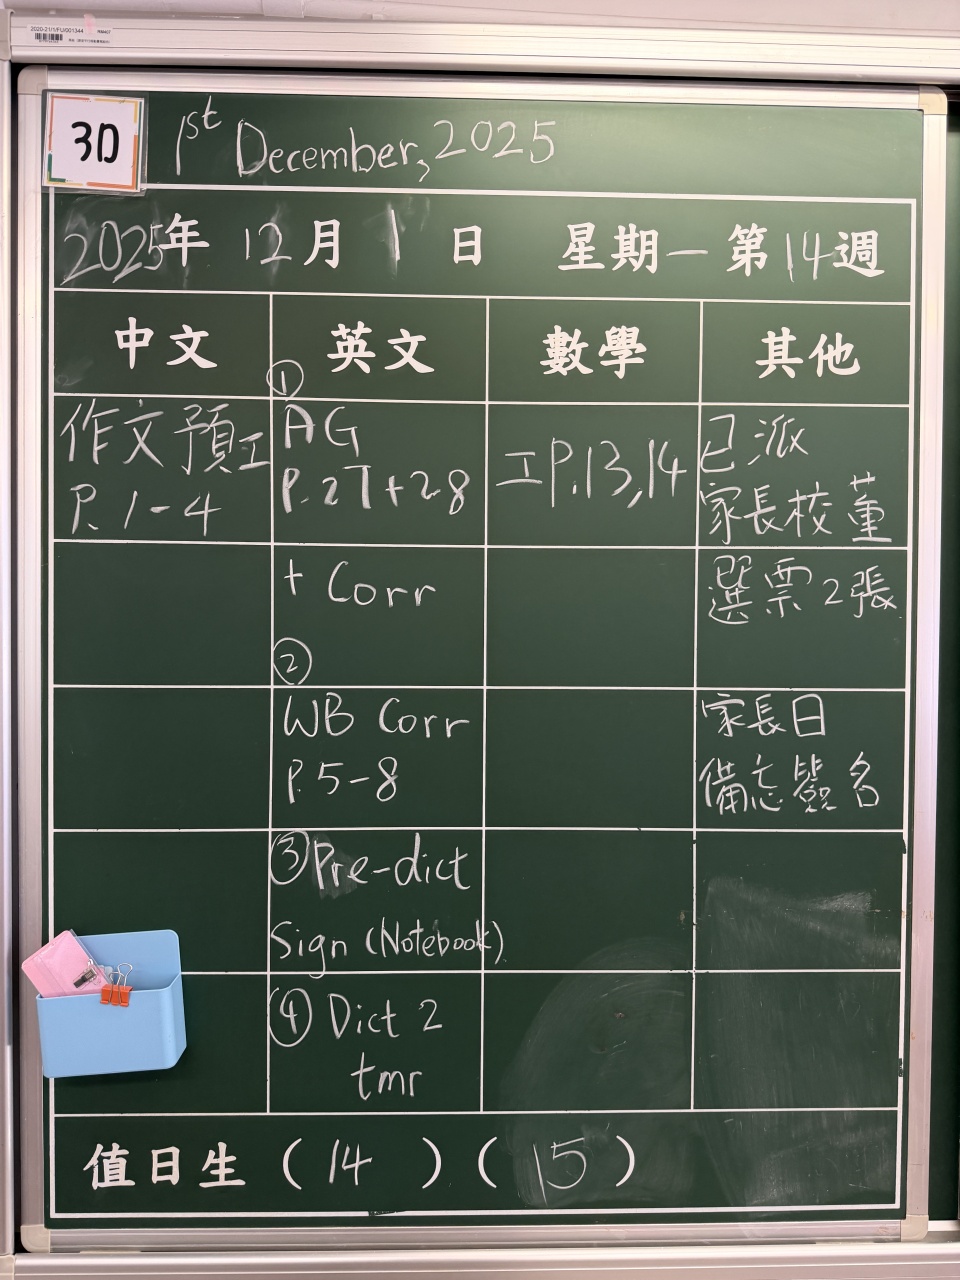 2020-21/1/FU/001344
3D
1st December, 2025
2025年 12月 1日 星期一 第14週
中文
英文
數學
其他
作文預工
P. 1-4
①
AG
P. 27+28
+ Corr
②
WB Corr
P. 5-8
③ Pre-dict
Sign (Notebook)
④ Dict 2
tmr
工P.13,14
已派
家長校董
選票2張
家長日
備忘簽名
值日生 (14) (15)